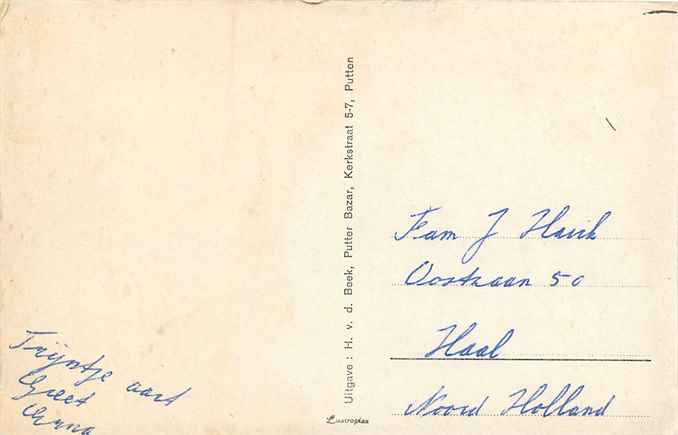 Trijntje aart
Greet
Uitgave : H. v. d. Beek, Putter Bazar, Kerkstraat 5-7, Putten
Lustroplex
Fam J Havik
Oostzaan 50
Haal
Noord Holland